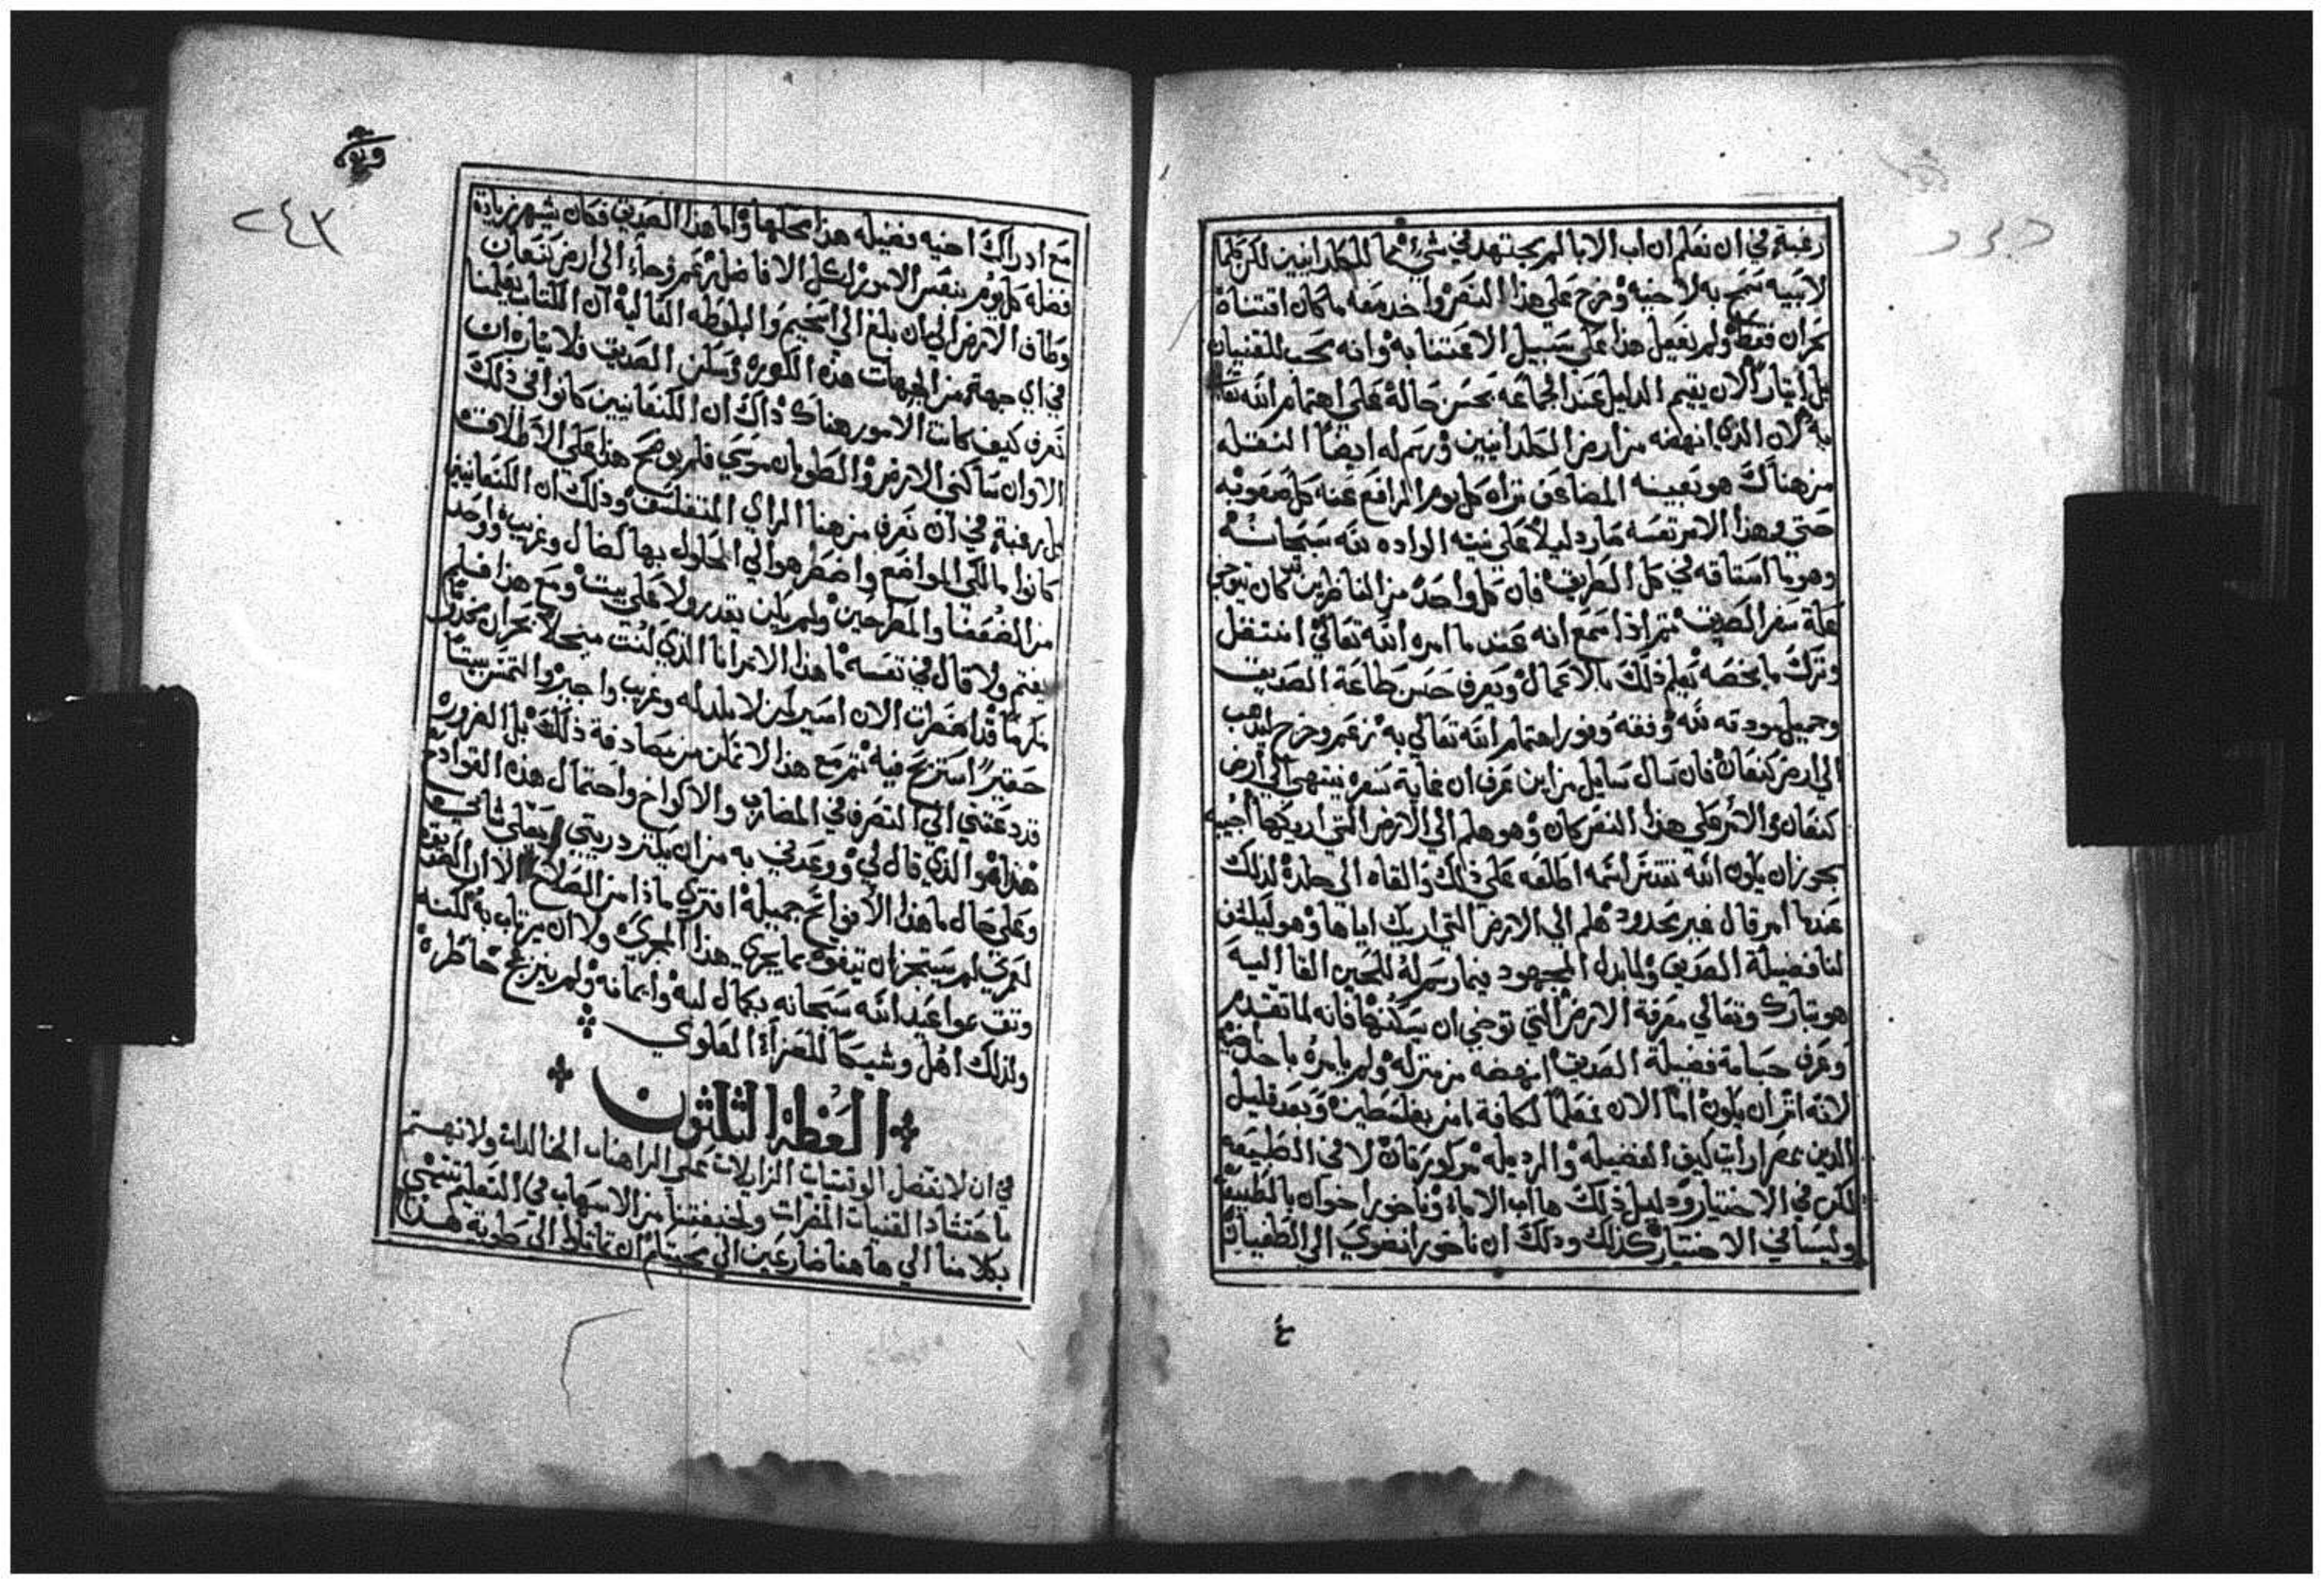 رغبة في ان نعلم ان اب الابا لم يجتهد في شي مما للكلدانيين لكن كلما
لابيه سمح به لاخيه وخرج علي هذا النحو واخد معه ما كان اقتناه
بحران فقط ولم نفعل هذا علي سبيل الاعتنا به وانه محب للقنيان
بل ايتارا لان يقيم الدليل عند الجماعه بحسن حاله علي اهتمام الله تعالي
به لان الذي انهضه من ارض الكلدانيين ورسم له ايضا النقله
من هناك هو بعينه المضاعف تراه كل يوم الرافع عنه كل صعوبه
حتي وهذا الامر نفسه صار دليلا علي نيته الواده لله سبحانه
وهو ما استاقه في كل الطريق فان كل واحد من الناظرين كان يتوخي
علة سفر الصديق ثم اذا سمع انه عند ما امره الله تعالي انتقل
وترك ما يخصه تعلم ذلك بالاعمال ويعرف حسن طاعة الصديق
وجميل مودته لله وفقه وفور اهتمام الله تعالي به زعم وخرج ليذهب
الي ارض كنعان فان سال سايل من اين عرف ان غاية سفره ينتهي الي ارض
كنعان والامر علي هذا النحو كان وهو هلم الي الارض التي اريكها اجيبه
يجوز ان يكون الله تقدس اسمه اطلعه علي ذلك والقاه الي خلده لذلك
عندما امر قال غير محدود هلم الي الارض التي اريك اياها وهو ليكشف
لنا فضيلة الصديق ولما بذل المجهود فيما رسم له للحين القا اليه
هو تبارك وتعالي معرفة الارض التي توخي ان يسكنها فانه لما تقدم
وعرف جسامة فضيلة الصديق انهضه من منزله ولم يامره باخذ اخيه
لانه اثر ان يكون اما الان معلما لكافة امن بفلسطين وبعد قليل
الذين بمصر ارايت كيف الفضيله والرديله مركورتان لا في الطبيعه
لكن في الاختيار ودليل ذلك ها اب الاباه وناخور اخوان بالطبيعه
وليسا في الاختيار كذلك وذلك ان ناخور انضوي الي الطغيان
ع
٢٤٣
مع ادراك اخيه فضيله هذا محلها واما هذا الصديق فكان يشهر زيادة
فضله كل يوم بنفس الامور لكل الافاضل زعم وجاء الي ارض كنعان
وطاف الارض الي ان بلغ الي اشخيم والبلوطه العاليه ان الكتاب يعلمنا
في اي جهة من الجهات هذه الكوره وسكن الصديق فلا يتاره ان
نعرف كيف كانت الامور هناك ذاك ان الكنعانيين كانوا في ذلك
الاوان ساكني الارض والطوبان موسي فلم يوضح هذا علي الاطلاق
بل رغبة في ان نعرف من هنا الراي المتفلسف وذلك ان الكنعانيين
كانوا مالكي المواضع واضطر هو الي الحلول بها كضال وغريب وواحد
من الضعفا والمطرحين ولم يكن يقدر ولا علي بيت ومع هذا فلم
يغتم ولا قال في نفسه ما هذا الامر انا الذي كنت مبجلا بحران مخدوما
مكرما قد اضطرت الان اسير كمن لا بلد له وغريب واجير والتمس بيتا
حقيرا استريح فيه ثم مع هذا لا تمكن من مصادفة ذلك بل الضروره
قد دعتني الي التصرف في المضارب والاكواخ واحتمال هذه القوادح
هذا هو الذي قال لي ووعدني به من ان يكثر دريتي
وعلي حال ما هذا الافواتح جميلة افتري ماذا من الصلاح الا ان الصديق
لعمري لم يستجز ان يتفوه بما يجري هذا المجري ولا ان يرتاب به لكنه
وتق بمواعيد الله سبحانه بكمال لبه وايمانه ولم ينزعج خاطره
ولذلك اهل وشيكا للعزاء العلوي
العظة الثلثون
في ان لا نفضل الوقتيات الزايلات علي الراهنات الخالدات ولا نهتم
باحتشاد القنيات المضرات ولخيفتنا من الاسهاب في التعليم تنتهي
بكلامنا الي هاهنا ضارعين الي محبتكم ان تماثلوا الي طوية هذا